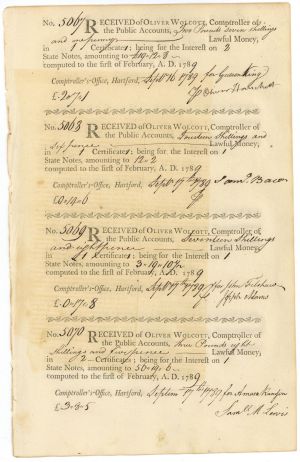 No. 5067 RECEIVED OF OLIVER WOLCOTT, Comptroller of
the Public Accounts, Two Pounds seven shillings
and Lawful Money,
in Certificates; being for the Interest on 2
State Notes, amounting to
computed to the first of February, A. D. 1789
Comptroller's-Office, Hartford, Sept 16 1789 for
£. 2..7..1
No. 5068 RECEIVED OF OLIVER WOLCOTT, Comptroller of
the Public Accounts, Fourteen Shillings and
Six pence Lawful Money,
in 1 Certificates; being for the Interest on 1
State Notes, amounting to 12..2
computed to the first of February, A. D. 1789
Comptroller's-Office, Hartford, Sept 17th 1789 Bacon
£. 0..14..6
No. 5069 RECEIVED OF OLIVER WOLCOTT, Comptroller of
the Public Accounts, Seventeen Shillings
and eight pence Lawful Money,
in 1 Certificates; being for the Interest on 1
State Notes, amounting to 3..19..
computed to the first of February, A. D. 1789
Comptroller's-Office, Hartford, Sept 17th 1789 for John
£. 0..17..8
No. 5070 RECEIVED OF OLIVER WOLCOTT, Comptroller of
the Public Accounts, three Pounds eight
Shillings and pence Lawful Money,
in 2 Certificates; being for the Interest on 1
State Notes, amounting to 50..19..6
computed to the first of February, A. D. 1789
Comptroller's-Office, Hartford, 17th 1789 for Amasa
£. 3..8..5 Saml. M. Lewis